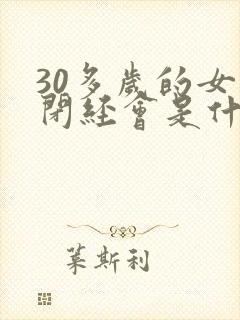 30多歲的女
閉經會是什
萊斯利